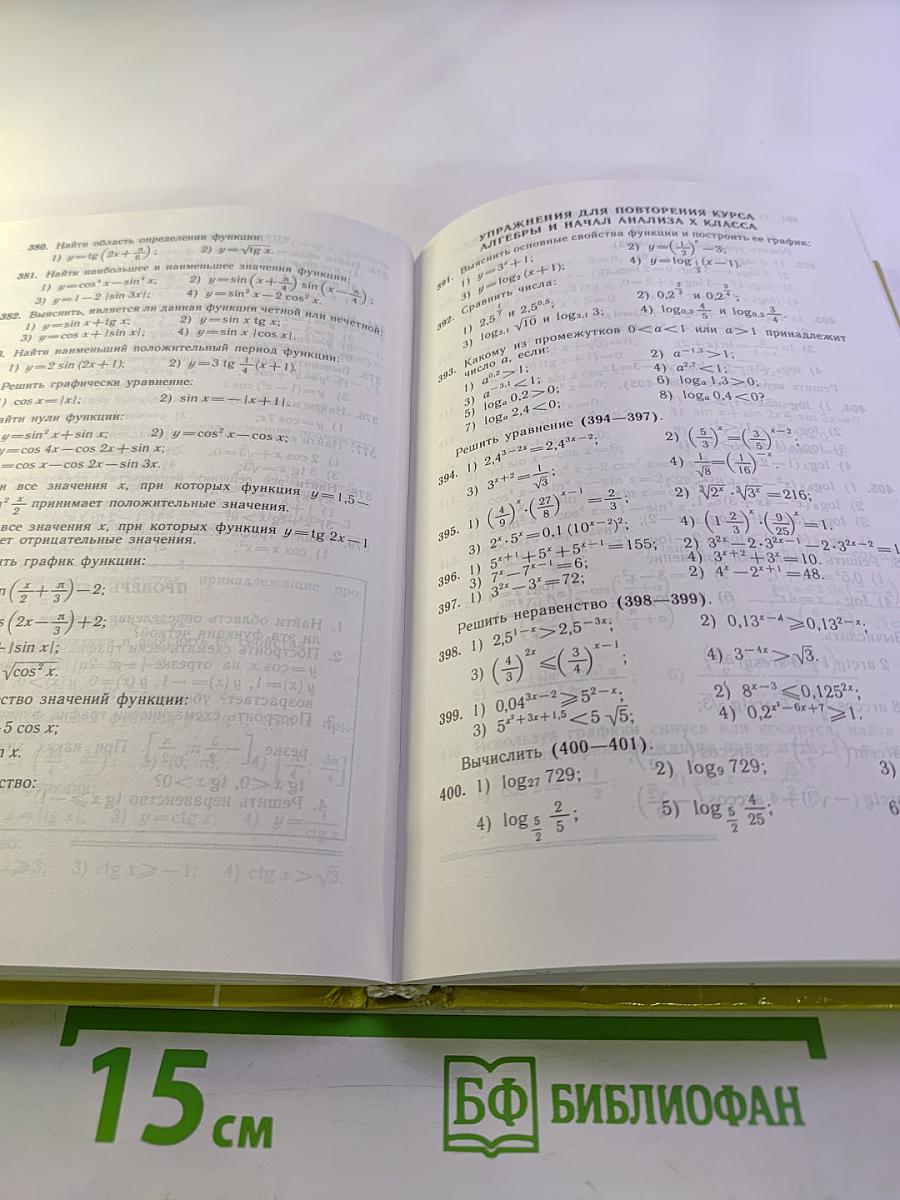 380. Найти область определения функции:
1) y=tg (2x+π/6); 2) y=√tg x.
381. Найти наибольшее и наименьшее значения функции:
1) y=cos⁴ x—sin⁴ x; 2) y=sin (x+π/4) sin (x—π/4);
3) y=1—2 |sin 3x|; 4) y=sin² x—2 cos² x.
382. Выяснить, является ли данная функция четной или нечетной:
1) y=sin x+tg x; 2) y=sin x tg x;
3) y=cos x+|sin x|; 4) y=sin x |cos x|.
Найти наименьший положительный период функции:
1) y=2 sin (2x+1); 2) y=3 tg 1/4 (x+1).
Решить графически уравнение:
) cos x=|x|; 2) sin x=—|x+1|.
айти нули функции:
y=sin² x+sin x; 2) y=cos² x—cos x;
y=cos 4x—cos 2x+sin x;
=cos x—cos 2x—sin 3x.
и все значения x, при которых функция y=1,5—
² x/2 принимает положительные значения.
все значения x, при которых функция y=tg 2x—1
ет отрицательные значения.
ить график функции:
n (x/2+π/3)—2;
s (2x—π/3)+2;
|sin x|;
√cos² x.
ество значений функции:
5 cos x;
n x.
ство:
УПРАЖНЕНИЯ ДЛЯ ПОВТОРЕНИЯ КУРСА
АЛГЕБРЫ И НАЧАЛ АНАЛИЗА X КЛАССА
391. Выяснить основные свойства функции и построить ее график:
1) y=3ˣ+1; 2) y=(1/2)ˣ—3;
3) y=log₂ (x+1); 4) y=log_{1/3} (x—1).
392. Сравнить числа:
1) 2,5^{1/7} и 2,5^{0,5}; 2) 0,2^{2/3} и 0,2^{3/4};
3) log_{3,1} √10 и log_{3,1} 3; 4) log_{0,3} 4/5 и log_{0,3} 3/4.
393. Какому из промежутков 0<a<1 или a>1 принадлежит
число a, если:
1) a^{0,2}>1; 2) a^{—1,3}>1;
3) a^{—3,1}<1; 4) a^{2,7}<1;
5) logₐ 0,2>0; 6) logₐ 1,3>0;
7) logₐ 2,4<0; 8) logₐ 0,4<0?
Решить уравнение (394—397).
394. 1) 2,4^{3—2x}=2,4^{3x—2}; 2) (5/3)ˣ=(3/5)^{x—2};
3) 3^{x+2}=1/√3; 4) 1/√8=(1/16)^{—x}.
395. 1) (4/9)ˣ·(27/8)^{x—1}=2/3; 2) ∛2ˣ·∛3ˣ=216;
3) 2ˣ·5ˣ=0,1 (10^{x—2})²; 4) (1 2/3)ˣ·(9/25)ˣ=1.
396. 1) 5^{x+1}+5ˣ+5^{x—1}=155; 2) 3^{2x}—2·3^{2x—1}—2·3^{2x—2}=1
3) 7ˣ—7^{x—1}=6; 4) 3^{x+2}+3ˣ=10.
397. 1) 3^{2x}—3ˣ=72; 2) 4ˣ—2^{x+1}=48.
Решить неравенство (398—399).
398. 1) 2,5^{1—x}>2,5^{—3x}; 2) 0,13^{x—4}⩾0,13^{2—x};
3) (4/3)^{2x}⩽(3/4)^{x—1}; 4) 3^{—4x}>√3.
399. 1) 0,04^{3x—2}⩾5^{2—x}; 2) 8^{x—3}⩽0,125^{2x};
3) 5^{x²+3x+1,5}<5 √5; 4) 0,2^{x²—6x+7}⩾1.
Вычислить (400—401).
400. 1) log₂₇ 729; 2) log₉ 729; 3)
4) log_{5/2} 2/5; 5) log_{5/2} 4/25; 6
15 см
БФ БИБЛИОФАН